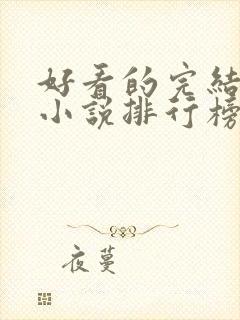 好看的完結
小說排行榜
夜蔓